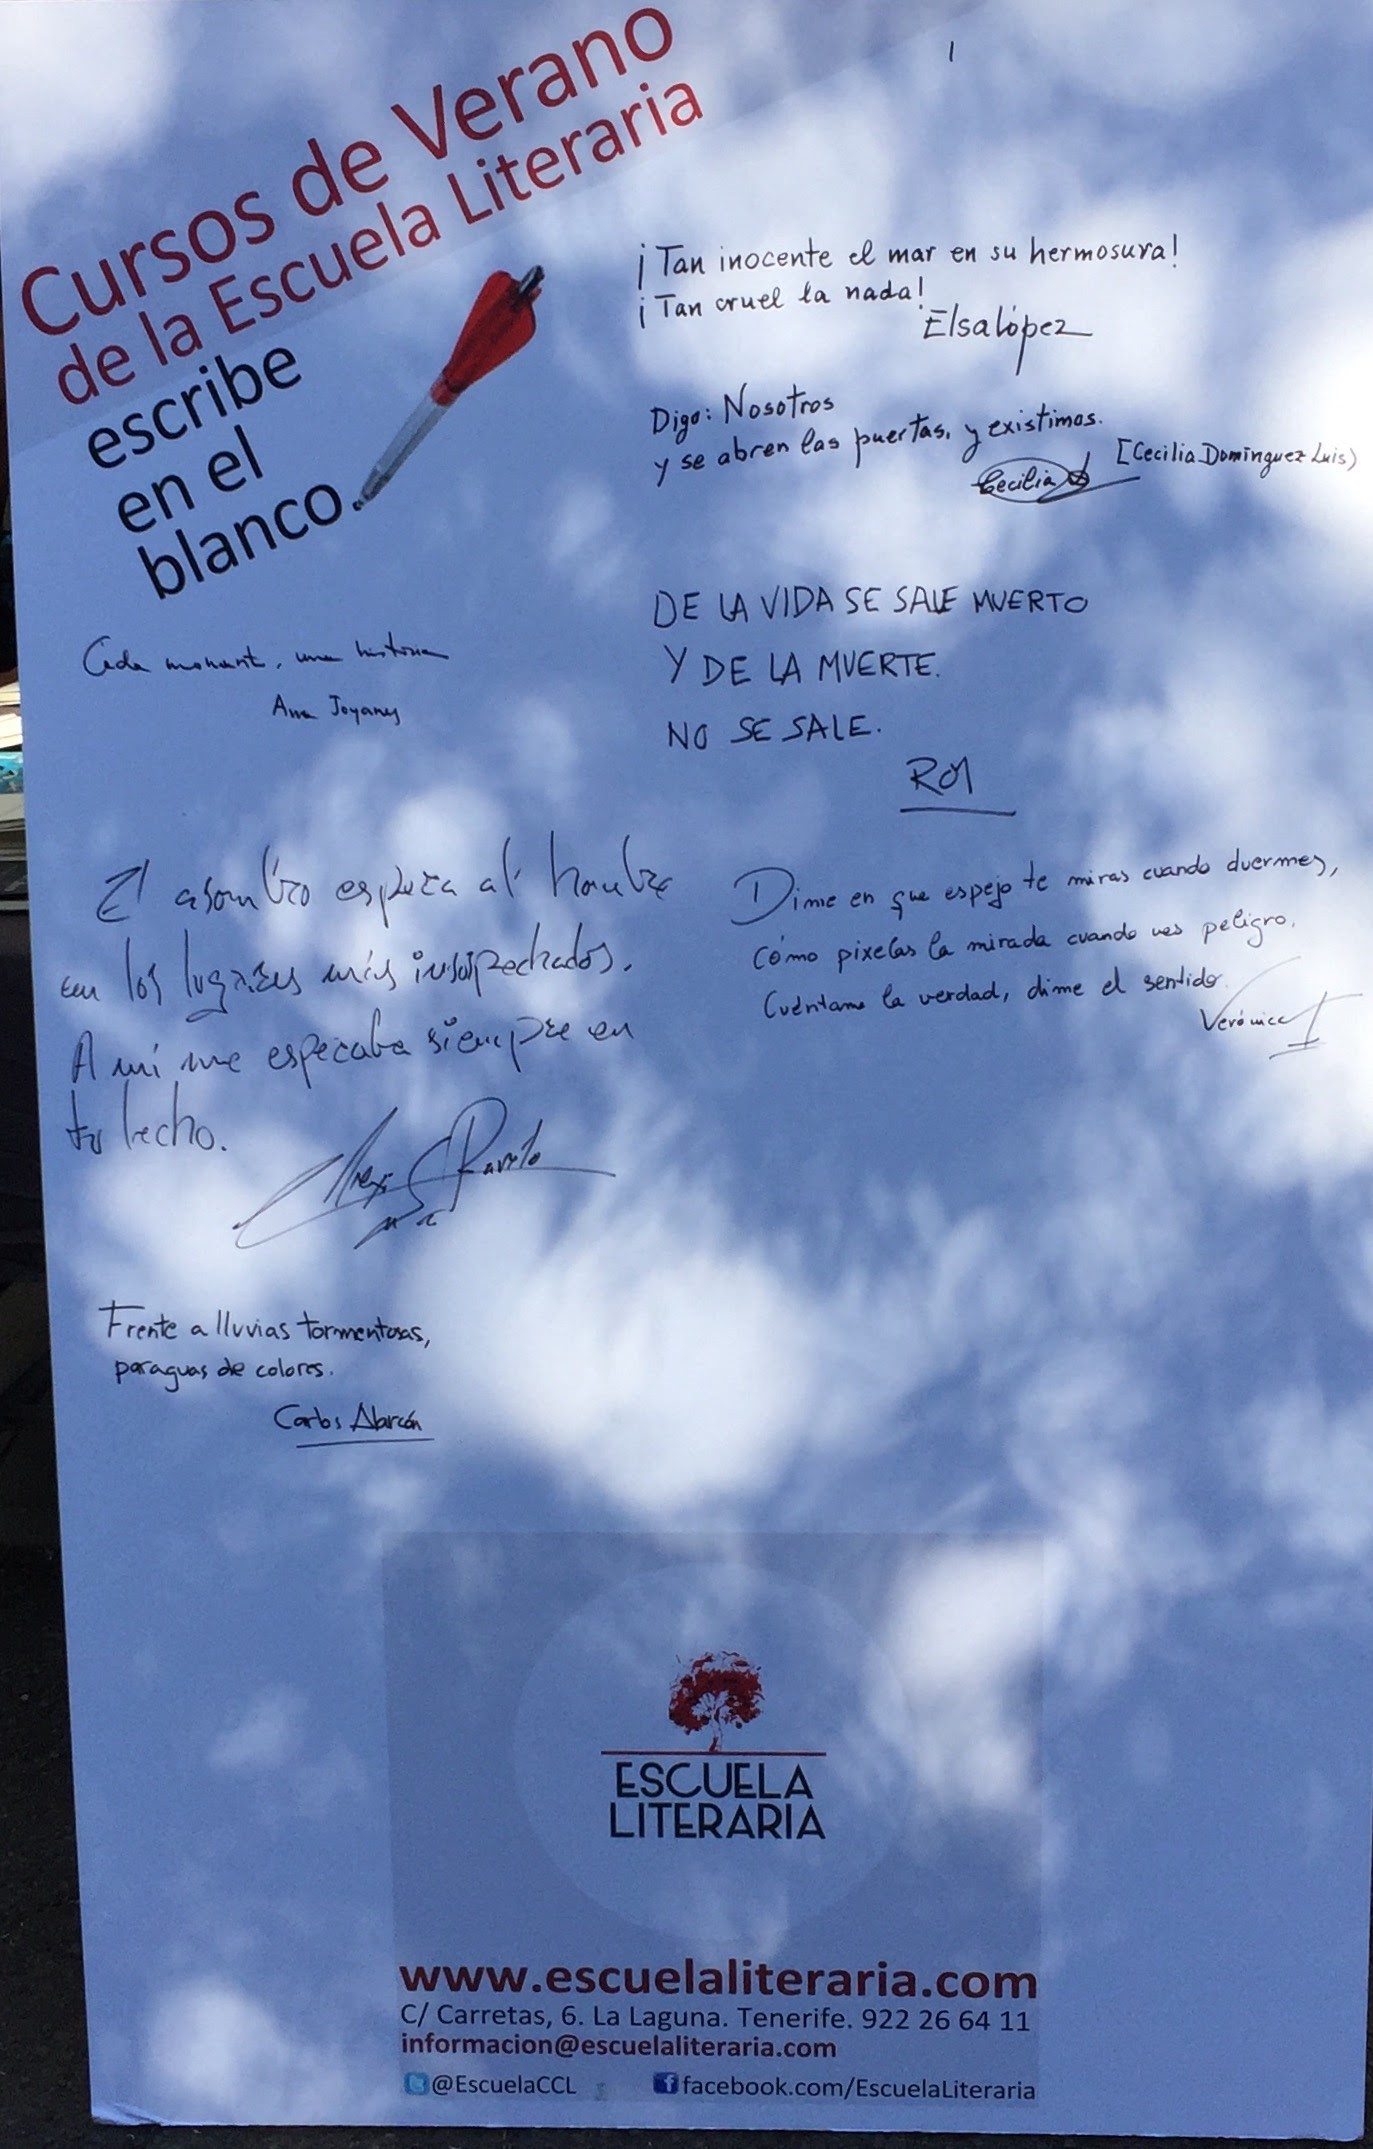 Cursos de Verano
de la Escuela Literaria
escribe
en el
blanco.
¡Tan inocente el mar en su hermosura!
¡Tan cruel la nada!
Elsa López
Digo: Nosotros
y se abren las puertas, y existimos.
Cecilia
[Cecilia Domínguez Luis)
Cada moment, una historia
Ana Joyanes
DE LA VIDA SE SALE MUERTO
Y DE LA MUERTE.
NO SE SALE.
El asombro espera al hombre
en los lugares más insospechados.
A mí me esperaba siempre en
tu lecho.
Alexis Ravelo
Dime en que espejo te miras cuando duermes,
cómo pixelas la mirada cuando ves peligro.
Cuéntame la verdad, dime el sentido.
Verónica
Frente a lluvias tormentosas,
paraguas de colores.
Carlos Alarcón
ESCUELA
LITERARIA
www.escuelaliteraria.com
C/ Carretas, 6. La Laguna. Tenerife. 922 26 64 11
informacion@escuelaliteraria.com
@EscuelaCCL
facebook.com/EscuelaLiteraria